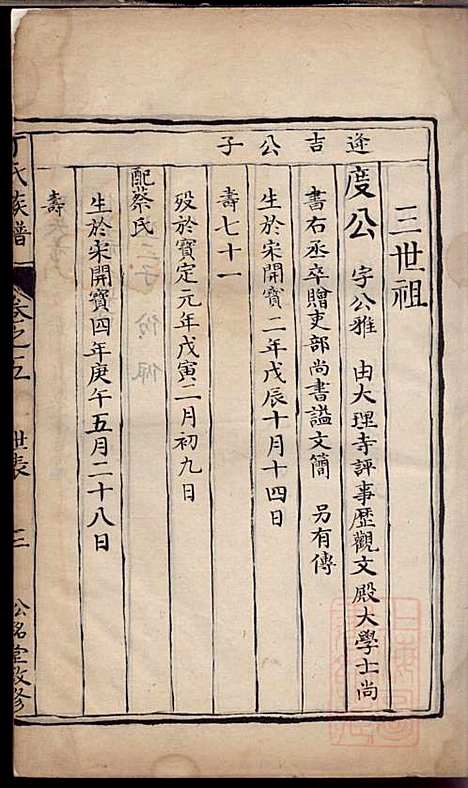 逄吉公子
三世祖
度公 字公雅 由大理寺評事歷觀文殿大學士尚
書右丞卒贈吏部尚書謚文簡 另有傳
生於宋開寶二年戊辰十月十四日
壽七十一
歿於寶定元年戊寅二月初九日
配蔡氏
生於宋開寶四年庚午五月二十八日
壽
丁氏族譜 卷之五 世表 三 公銘堂敬修